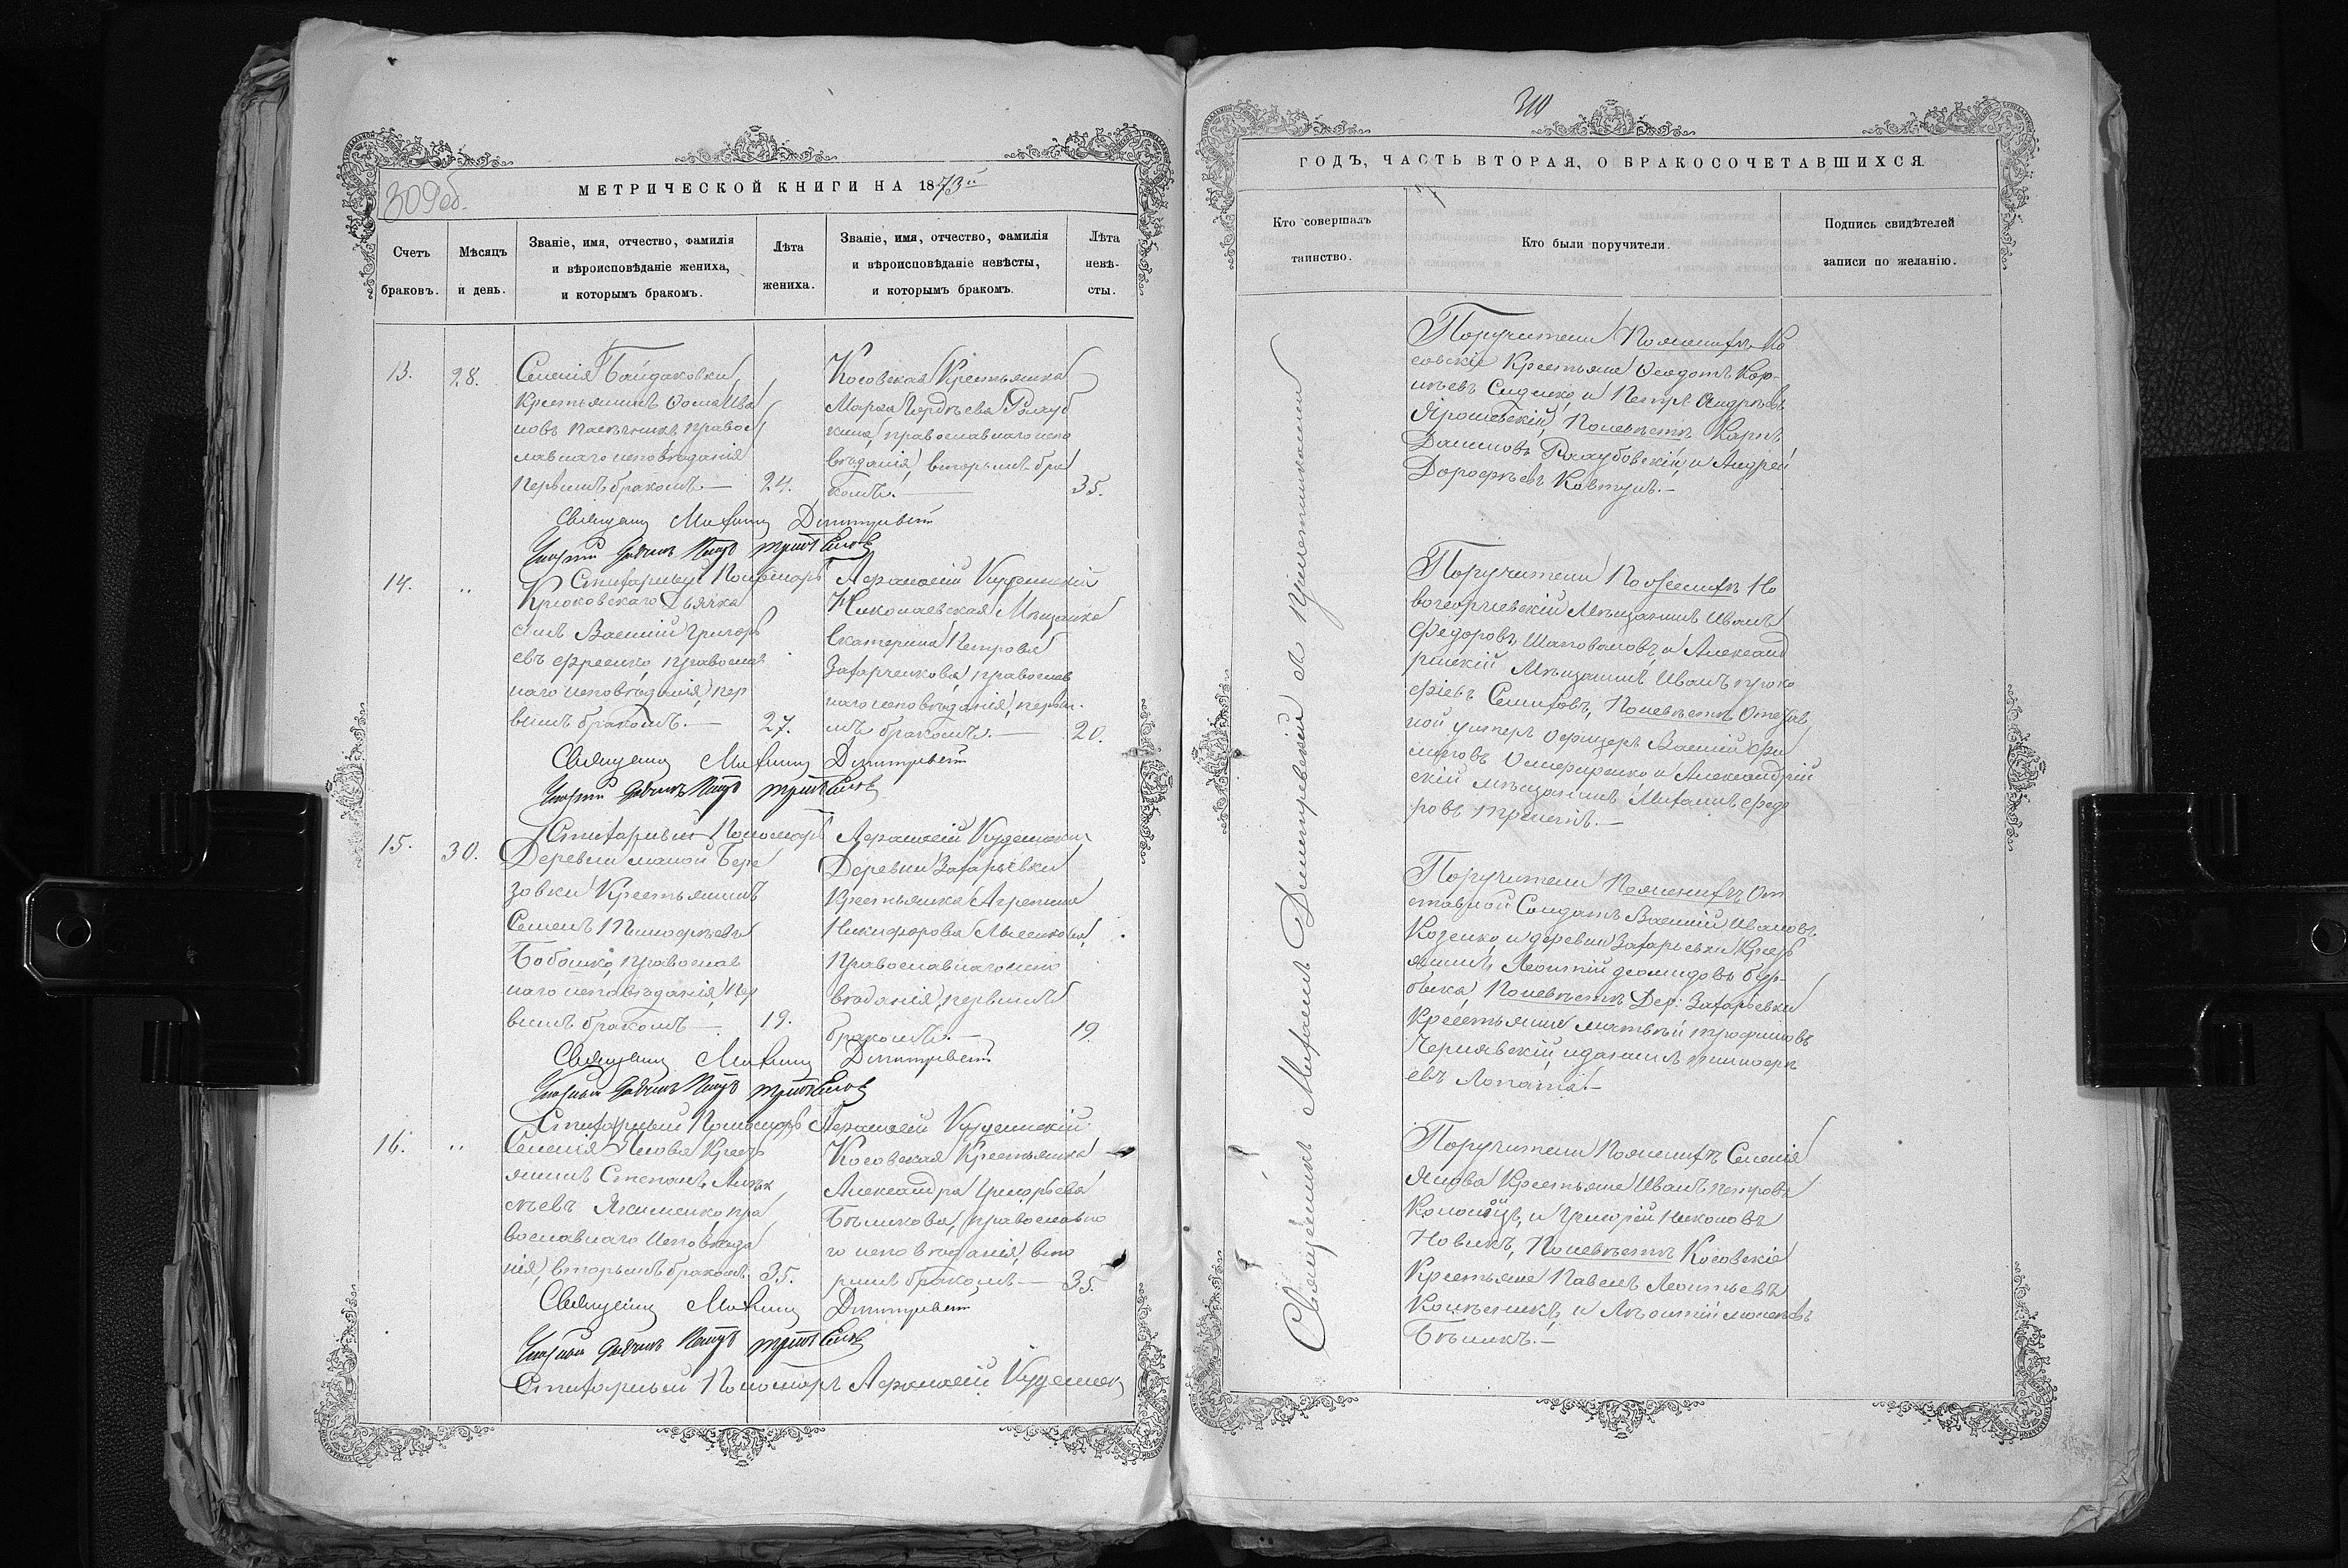 309об.
МЕТРИЧЕСКОЙ КНИГИ НА 1873й
Счетъ браковъ.
Мѣсяцъ и день.
Званіе, имя, отчество, фамилія
и вѣроисповѣданіе жениха,
и которымъ бракомъ.
Лѣта жениха.
Званіе, имя, отчество, фамилія
и вѣроисповѣданіе невѣсты,
и которымъ бракомъ.
Лѣта невѣ-
сты.
13.
28.
Селенія Байдаковки
Крестьянинъ Ѳома Ива
новъ Пасѣчникъ, правос
лавнаго исповѣданія
первымъ бракомъ.—
24.
Косовская Крестьянка
Марѳа Гордѣева
православнаго испо
вѣданія, вторымъ бра
комъ.—
35.
Священ Михаилъ Димитріевъ
Стихарный Пономарь Герасимъ
14.
"
Крюковскаго Дьячка
сынъ Василій Григорь
евъ православ
наго исповѣданія, пер
вымъ бракомъ.—
27.
Николаевская Мѣщанка
Екатерина Петрова
Захарченкова, православ
наго исповѣданія, первы-
мъ бракомъ.—
20.
Священ Михаилъ
Стихарный Пономарь
15.
30.
Деревни малой Бере
зовки Крестьянинъ
Семенъ Тимоѳѣевъ
Бобошко, православ
наго исповѣданія, пер
вымъ бракомъ—
19.
Деревни Захарьевки
Крестьянка Агрепина
Никифорова
Православнаго испо
вѣданія, первымъ
бракомъ.—
19.
Священ Михаилъ
Стихарный Пономарь
16.
"
Селенія Янова Кресть
янинъ Степанъ Алек
сѣевъ Якименко, пра
вославнаго исповѣда
нія, вторымъ бракомъ
35.
Косовская Крестьянка
Александра Григорьева
Бѣликова, православна
го исповѣданія, вто
рымъ бракомъ—
35.
Священ Михаилъ
Стихарный Пономарь
310
ГОДЪ, ЧАСТЬ ВТОРАЯ, О БРАКОСОЧЕТАВШИХСЯ.
Кто совершалъ
таинство.
Кто были поручители.
Подпись свидѣтелей
записи по желанію.
Священникъ Михаилъ Димитревскій съ Причетниками
Поручители По женихѣ Ко
совскіе Крестьяне Ѳеодотъ Кор-
нѣевъ Сиденко, и Петръ Андрѣевъ
Ярошевскій, По невѣстѣ Карпъ
Даниловъ и Андрей
Дороѳѣевъ Ковтунъ.—
Поручители По женихѣ Но
вогеоргіевскій Мѣщанинъ Иванъ
Федоровъ Шаповаловъ, и Александ
рійскій Мѣщанинъ Иванъ Проко
фіевъ По невѣстѣ Отстав
ной унтеръ Офицеръ Василій Фи
липовъ и Александрій
скій мѣщанинъ Михаилъ Федо
ровъ
Поручители По женихѣ От
ставной Солдатъ Василій Ивановъ
Козенко, и деревни Захарьевки Кресть
янинъ Леонтій Деомидовъ
По невѣстѣ Дер: Захарьевки
Крестьяне Матвѣй Трофимовъ
Чернявскій, и Даніилъ Тимоѳѣ
евъ Лопата.—
Поручители По женихѣ Селенія
Янова Крестьяне Иванъ Петровъ
и Григорій Никоновъ
Новикъ, По невѣстѣ Косовскіе
Крестьяне Павелъ Леонтьевъ
и Леонтій
Бѣликъ.—